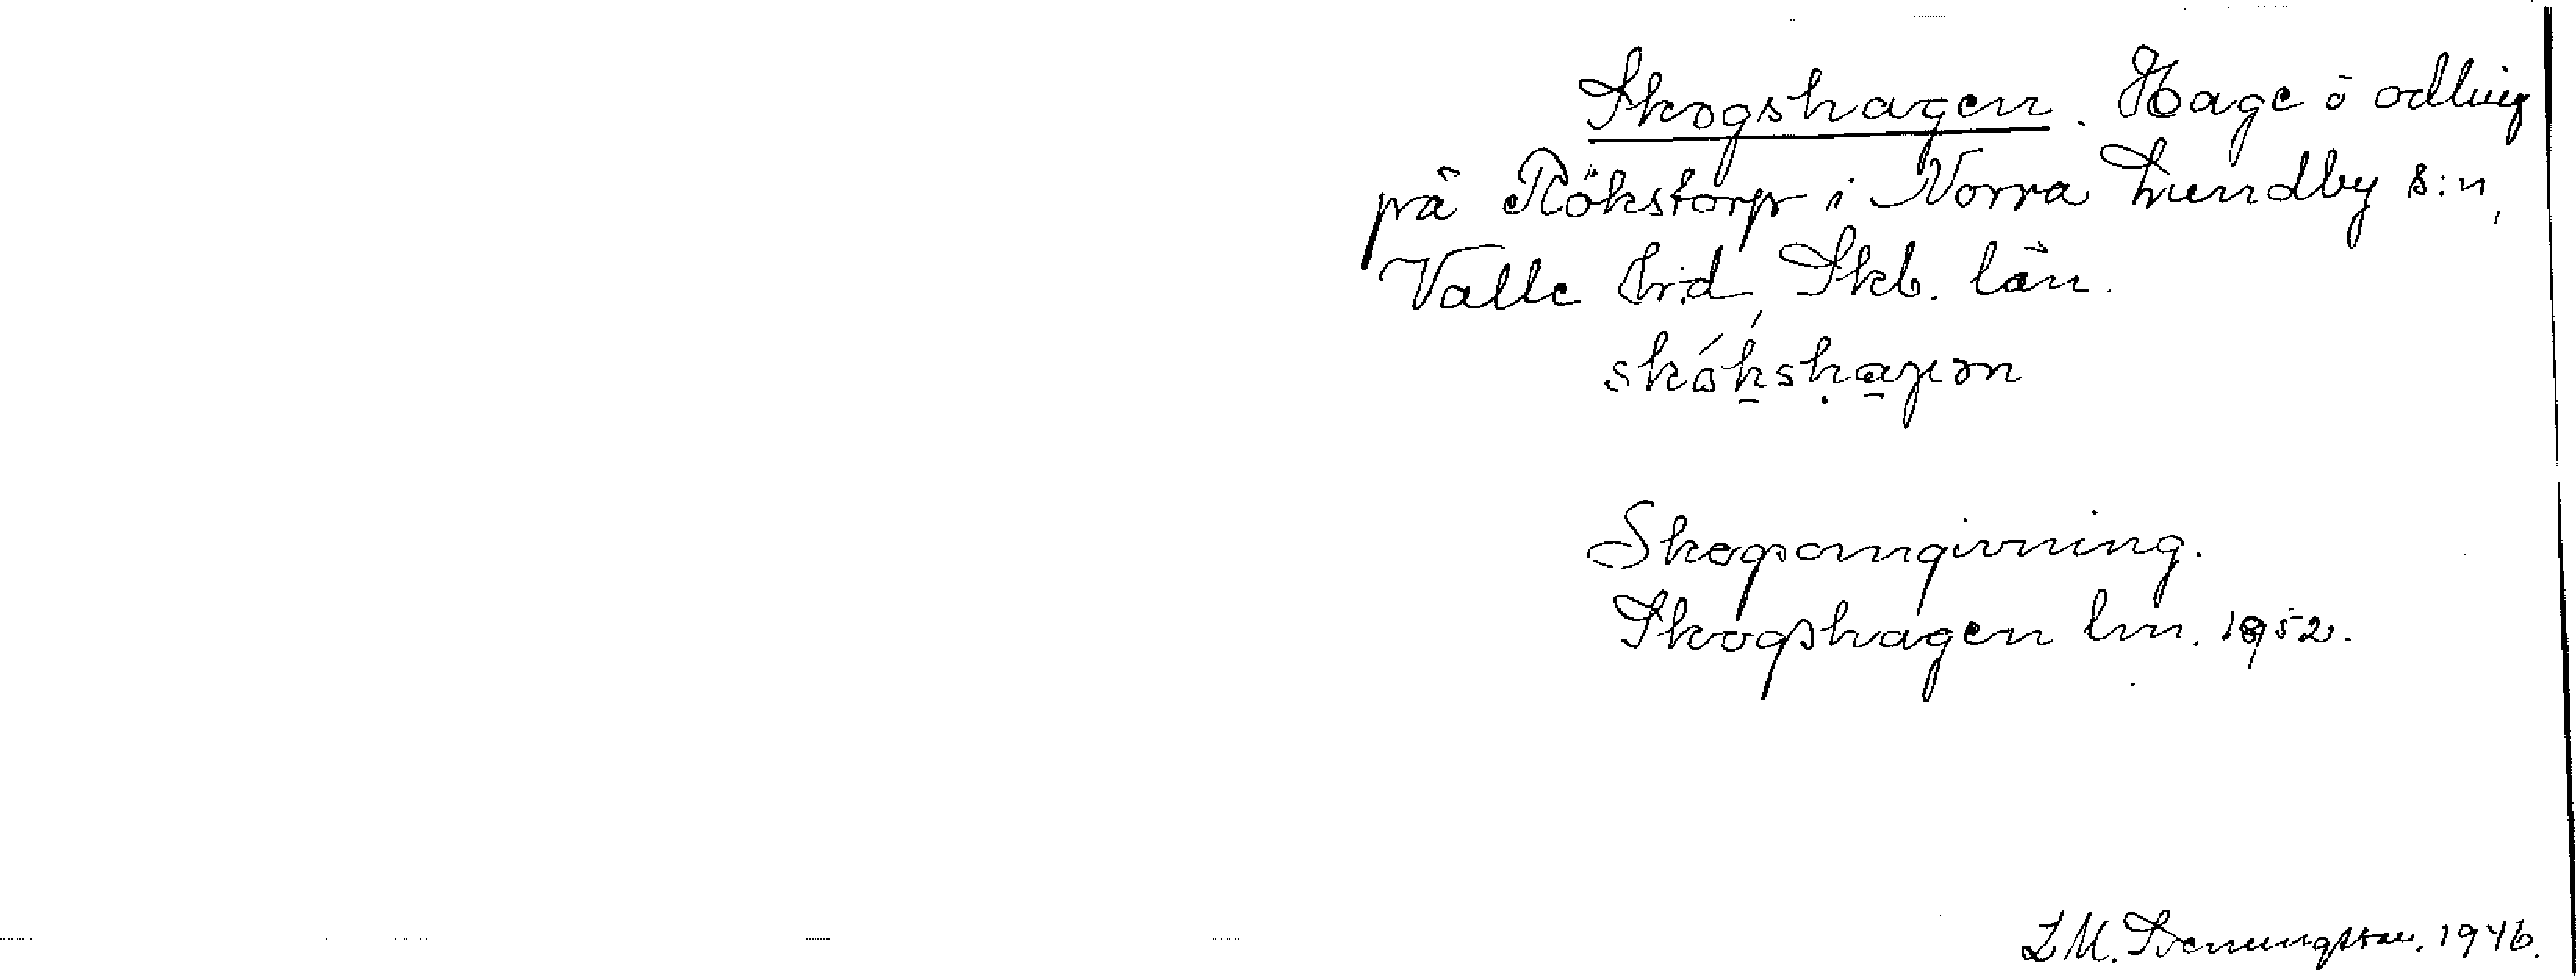 Skogshagen. Hage ö odling
på Rökstorp i Norra Lundby s:n,
Valle hd, Skb. län.
Skogsomgivning.
Skogshagen lm. 1952.
L M. Svenungsson. 1946.